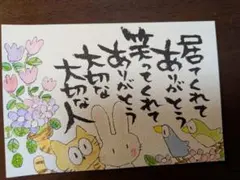 居てくれて
ありがとう
笑ってくれて
ありがとう
大切な
大切な人